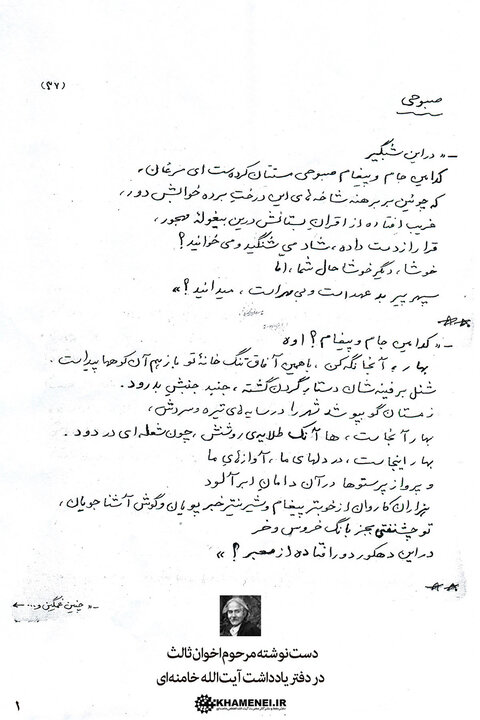 (۳۷)
صبوحی
ـ « در این شبگیر
کدامین جام و پیغام صبوحی مستتان کرده‌ست ای مرغان،
که چونین بر برهنه شاخه‌های این درختِ برده خوابش دور،
غریب افتاده از اقران بستانش درین بیغولهٔ مهجور،
قرار از دست داده، شاد می‌شنگید و می‌خوانید؟
خوشا، دیگر خوشا حال شما، اما
سپهر پیر بد عهد است و بی مهر است، میدانید؟ »
**
ـ « کدامین جام و پیغام؟ اوه
بهار، آنجا نگه کن، با همین آفاق تنگ خانهٔ تو باز هم آن کوهها پیداست.
شنل برفینه‌شان دستار گردن گشته، جنبد جنبش بدرود.
زمستان گو بپوشد شهر را در سایه‌های تیره و سردش،
بهار آنجاست، ها آنک طلایه‌ی روشنش، چون شعله‌ای در دود.
بهار اینجاست، در دلهای ما، آوازهای ما
و پرواز پرستوها در آن دامان ابرآلود
هزاران کاروان از خوبتر پیغام و شیرینتر خبر پویان و گوش آشنا جویان،
تو چشنفتی بجز بانگ خروس و خر
در این دهکور دور افتاده از معبر؟ »
**
ـ « چنین غمگین و... ←
دست‌نوشته مرحوم اخوان ثالث
در دفتر یادداشت آیت‌الله خامنه‌ای
KHAMENEI.IR
۱